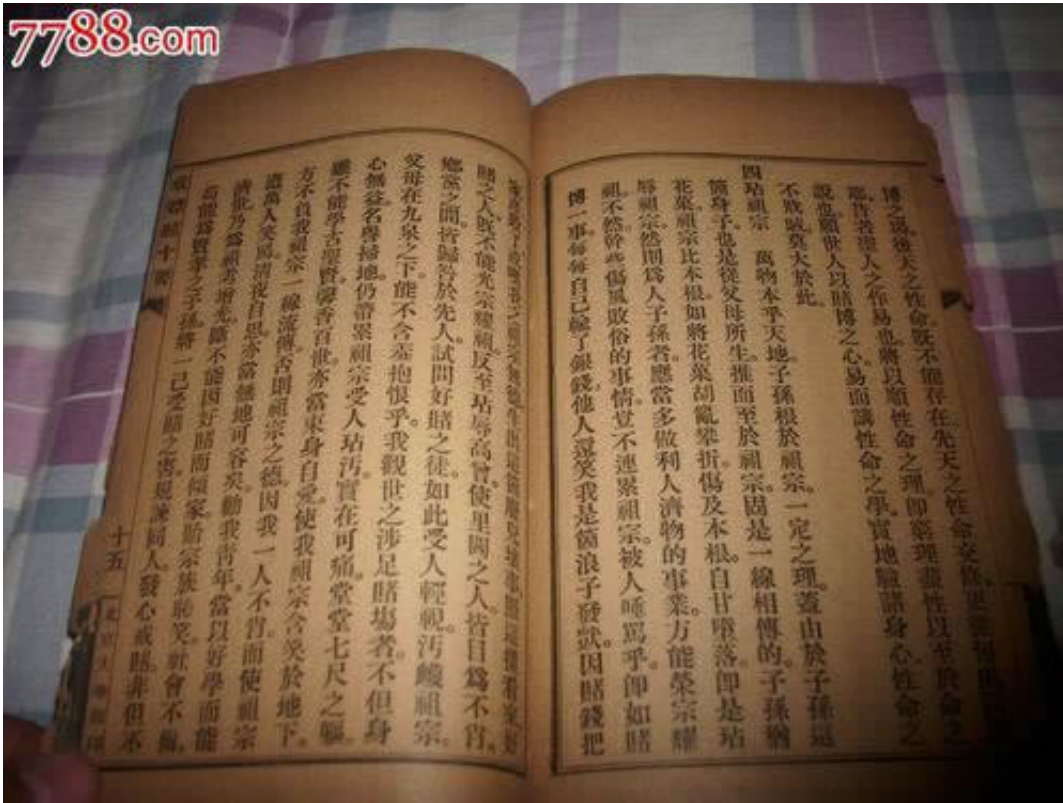 7788.com
博之場後天之性命既不能存在先天之性命
耶昔者聖人之作易也將以順性命之理即窮理盡性以至於命之
說也願世人以賭博之心易而講性命之學實地驗諸身心性命之
不戕賊莫大於此。
四玷祖宗 萬物本乎天地子孫根於祖宗一定之理蓋由於子孫這
箇身子也是從父母所生推而至於祖宗固是一線相傳的子孫猶
花菓祖宗比本根如將花菓胡亂攀折傷及本根自甘墮落即是玷
辱祖宗然則為人子孫者應當多做利人濟物的事業方能榮宗耀
祖不然幹些傷風敗俗的事情豈不連累祖宗被人唾罵乎即如賭
博一事每每自己輸了銀錢他人還笑我是箇浪子發獃因賭錢把
賭之人既不能光宗耀祖反至玷辱高曾使里閭之人皆目為不肖。
鄉黨之間皆歸咎於先人試問好賭之徒如此受人輕視污衊祖宗。
父母在九泉之下能不含羞抱恨乎。我觀世之涉足賭場者。不但身
心無益名譽掃地仍帶累祖宗受人玷污實在可痛堂堂七尺之軀。
雖不能學古聖賢馨香百世亦當束身自愛使我祖宗含笑於地下。
方不負我祖宗一線流傳否則祖宗之德因我一人不肖而使祖宗
遭萬人笑罵清夜自思亦當無地可容矣勸我青年當以好學而能
濟世乃為祖考增光斷不能因好賭而傾家貽宗族恥笑社會不齒
苟能為賢孝之子孫將一己受賭之害規諫同人發心戒賭非但不
戒賭十
十五